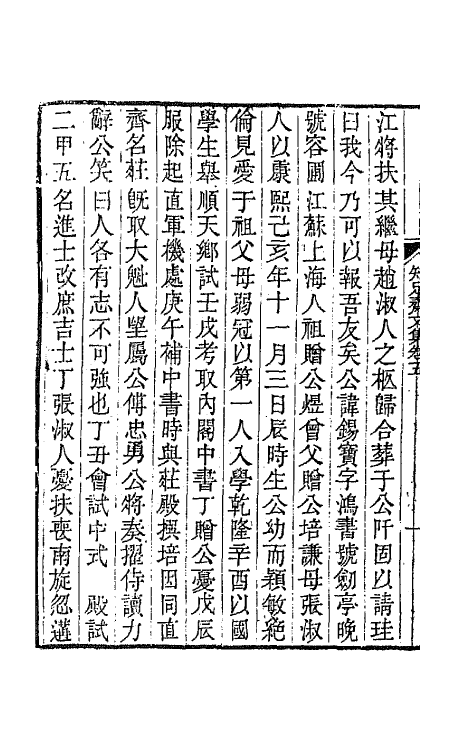 江將扶其繼母趙淑人之柩歸合葬于公阡固以請珪
曰我今乃可以報吾友矣公諱錫寶字鴻書號劒亭晚
號容圃江蘇上海人祖贈公煜曾父贈公培謙母張淑
人以康熙己亥年十一月三日辰時生公幼而穎敏絶
倫見愛于祖父母弱冠以第一人入學乾隆辛酉以國
學生舉順天鄉試壬戌考取內閣中書丁贈公憂戊辰
服除起直軍機處庚午補中書時與莊殿撰培因同直
齊名莊旣取大魁人望屬公傅忠勇公將奏擢侍讀力
辭公笑曰人各有志不可強也丁丑會試中式　殿試
二甲五名進士改庶吉士丁張淑人憂扶喪南旋忽遘
知足齋文集卷五